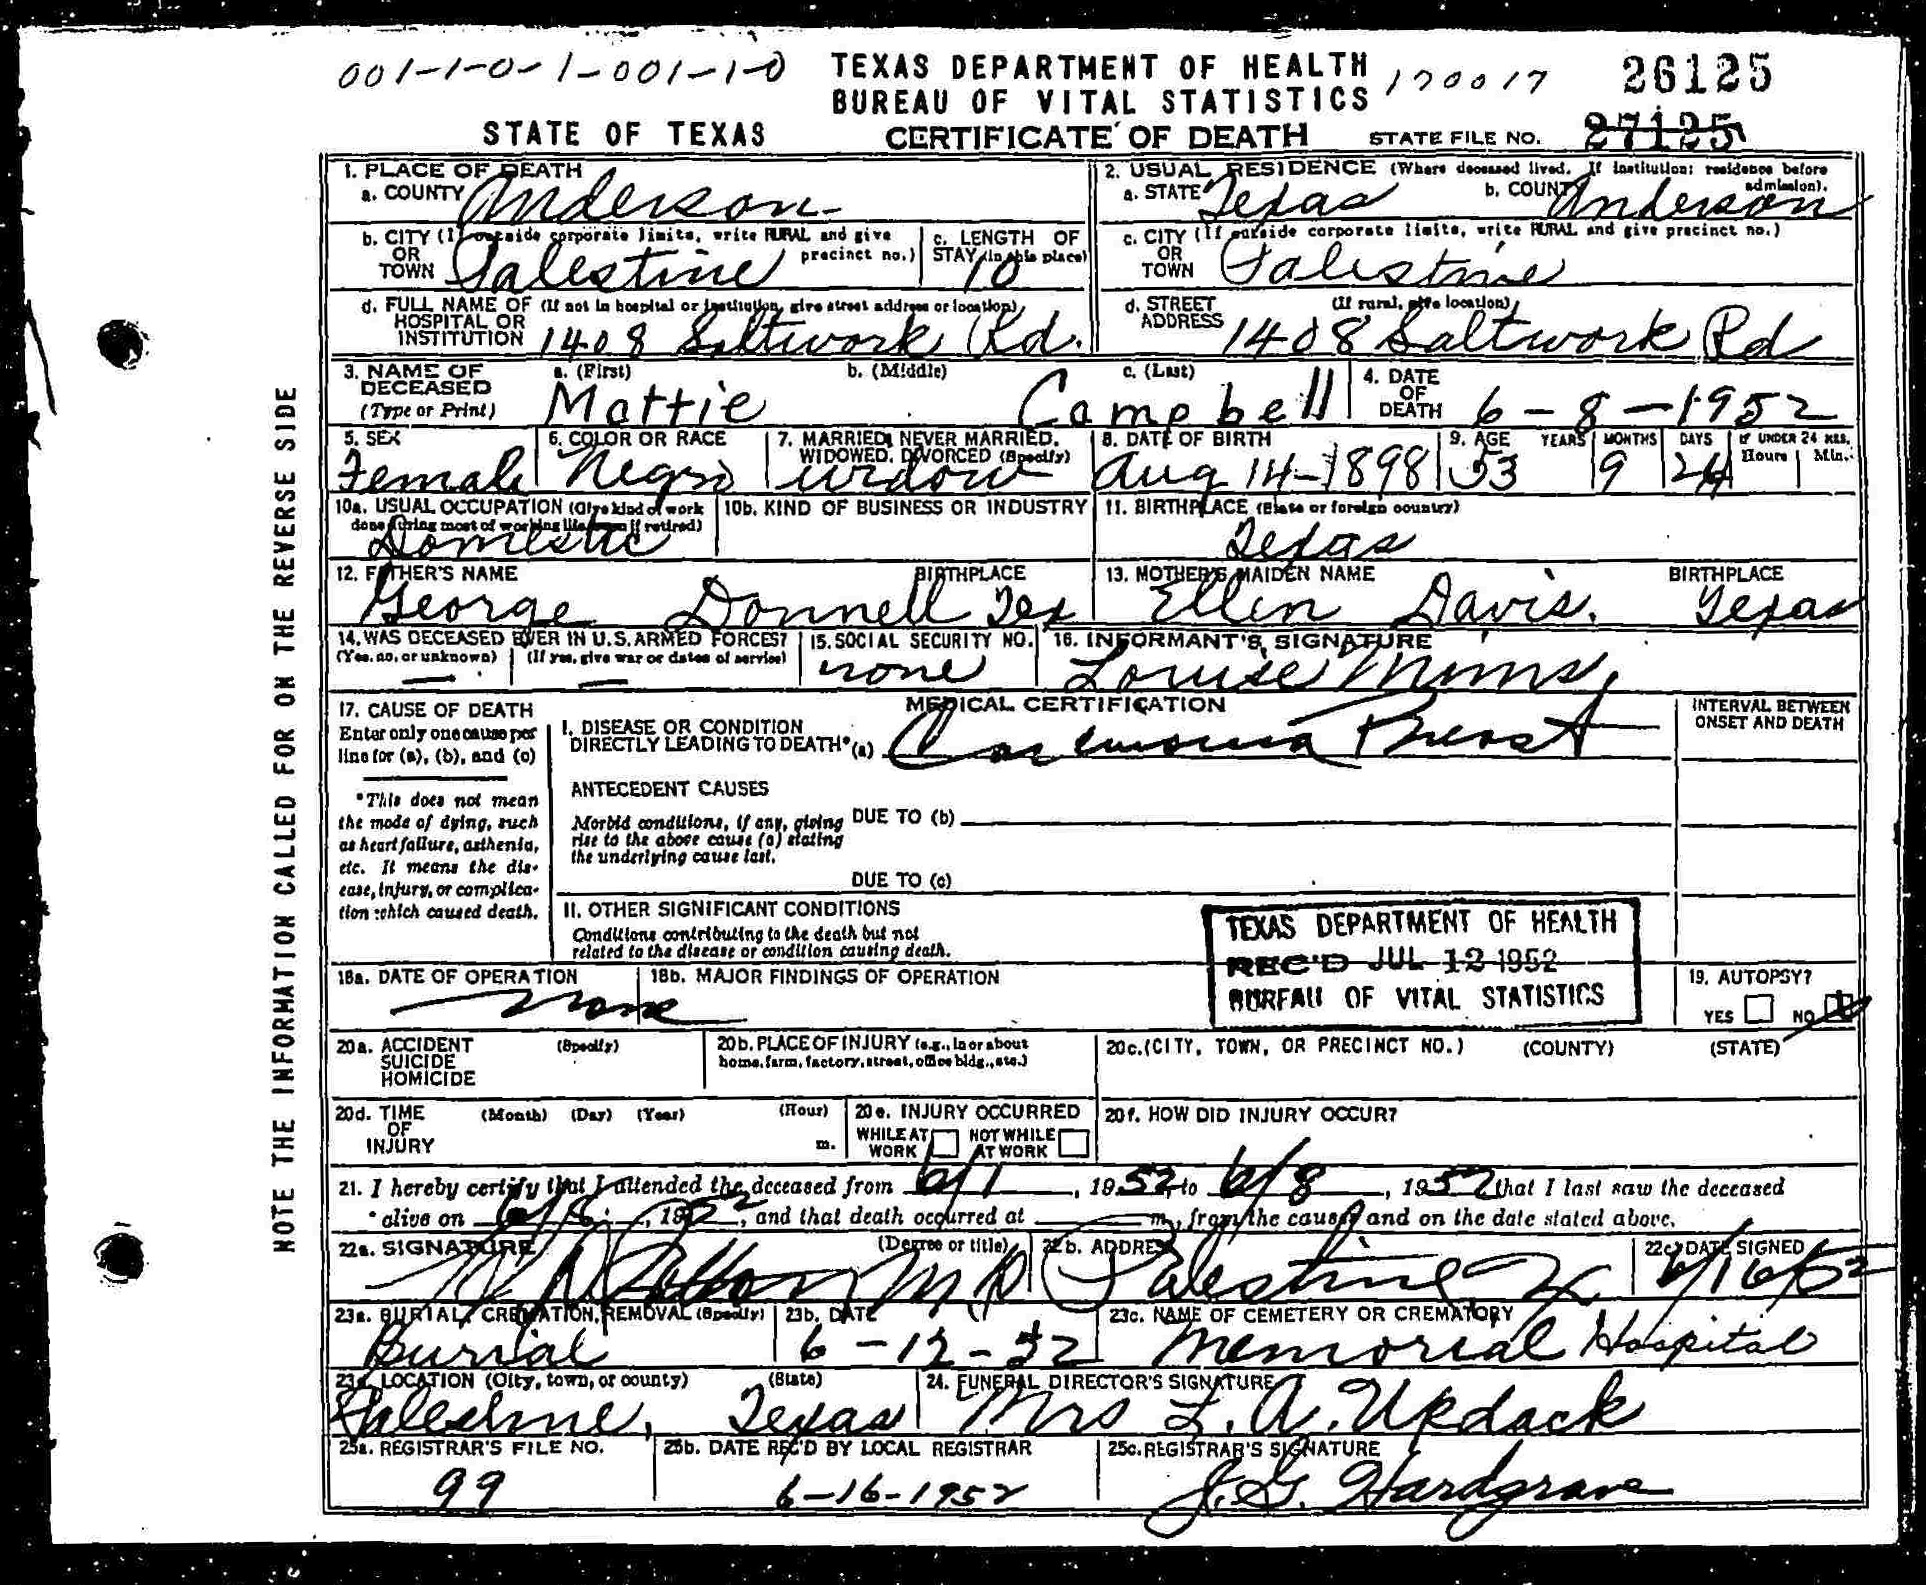 001-1-0-1-001-1-0 TEXAS DEPARTMENT OF HEALTH 170017 26125
BUREAU OF VITAL STATISTICS
STATE OF TEXAS CERTIFICATE OF DEATH STATE FILE NO. 27125
NOTE THE INFORMATION CALLED FOR ON THE REVERSE SIDE
1. PLACE OF DEATH
a. COUNTY Anderson
2. USUAL RESIDENCE (Where deceased lived. If institution: residence before admission).
a. STATE Texas b. COUNTY Anderson
b. CITY (If outside corporate limits, write RURAL and give precinct no.)
OR
TOWN Palestine
c. LENGTH OF
STAY (in this place) 10
c. CITY (If outside corporate limits, write RURAL and give precinct no.)
OR
TOWN Palestine
d. FULL NAME OF (If not in hospital or institution, give street address or location)
HOSPITAL OR
INSTITUTION 1408 Saltwork Rd.
d. STREET (If rural, give location)
ADDRESS 1408 Saltwork Rd
3. NAME OF DECEASED (Type or Print)
a. (First) b. (Middle) c. (Last)
Mattie Campbell
4. DATE OF DEATH 6-8-1952
5. SEX Female
6. COLOR OR RACE Negro
7. MARRIED, NEVER MARRIED, WIDOWED, DIVORCED (Specify) widow
8. DATE OF BIRTH Aug 14-1898
9. AGE YEARS MONTHS DAYS IF UNDER 24 HRS. Hours Min.
53 9 24
10a. USUAL OCCUPATION (Give kind of work done during most of working life, even if retired)
Domestic
10b. KIND OF BUSINESS OR INDUSTRY
11. BIRTHPLACE (State or foreign country)
Texas
12. FATHER'S NAME BIRTHPLACE
George Donnell Tex
13. MOTHER'S MAIDEN NAME BIRTHPLACE
Ellen Davis. Texas
14. WAS DECEASED EVER IN U.S. ARMED FORCES?
(Yes, no, or unknown) (If yes, give war or dates of service)
— —
15. SOCIAL SECURITY NO.
none
16. INFORMANT'S SIGNATURE
Louise Mims
17. CAUSE OF DEATH
Enter only one cause per line for (a), (b), and (c)
*This does not mean the mode of dying, such as heart failure, asthenia, etc. It means the disease, injury, or complication which caused death.
MEDICAL CERTIFICATION
INTERVAL BETWEEN ONSET AND DEATH
I. DISEASE OR CONDITION
DIRECTLY LEADING TO DEATH* (a) Carcinoma Breast
ANTECEDENT CAUSES
Morbid conditions, if any, giving rise to the above cause (a) stating the underlying cause last.
DUE TO (b)
DUE TO (c)
II. OTHER SIGNIFICANT CONDITIONS
Conditions contributing to the death but not related to the disease or condition causing death.
TEXAS DEPARTMENT OF HEALTH
REC'D JUL 12 1952
BUREAU OF VITAL STATISTICS
18a. DATE OF OPERATION
none
18b. MAJOR FINDINGS OF OPERATION
19. AUTOPSY?
YES NO
20a. ACCIDENT (Specify)
SUICIDE
HOMICIDE
20b. PLACE OF INJURY (e.g., in or about home, farm, factory, street, office bldg., etc.)
20c. (CITY, TOWN, OR PRECINCT NO.) (COUNTY) (STATE)
20d. TIME OF INJURY (Month) (Day) (Year) (Hour) m.
20e. INJURY OCCURRED
WHILE AT WORK NOT WHILE AT WORK
20f. HOW DID INJURY OCCUR?
21. I hereby certify that I attended the deceased from 6/1, 1952, to 6/8, 1952 that I last saw the deceased
alive on 6/8, 1952, and that death occurred at m., from the causes and on the date stated above.
22a. SIGNATURE (Degree or title)
MD
22b. ADDRESS
Palestine
22c. DATE SIGNED
6/16/52
23a. BURIAL, CREMATION, REMOVAL (Specify)
Burial
23b. DATE
6-12-52
23c. NAME OF CEMETERY OR CREMATORY
Memorial Hospital
23d. LOCATION (City, town, or county) (State)
Palestine, Texas
24. FUNERAL DIRECTOR'S SIGNATURE
Mrs L. A. Updack
25a. REGISTRAR'S FILE NO.
99
25b. DATE REC'D BY LOCAL REGISTRAR
6-16-1952
25c. REGISTRAR'S SIGNATURE
J. G. Hardgrave